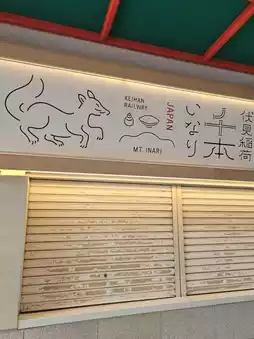 KEIHAN
RAILWAY
JAPAN
MT. INARI
伏見稲荷
千本
いなり